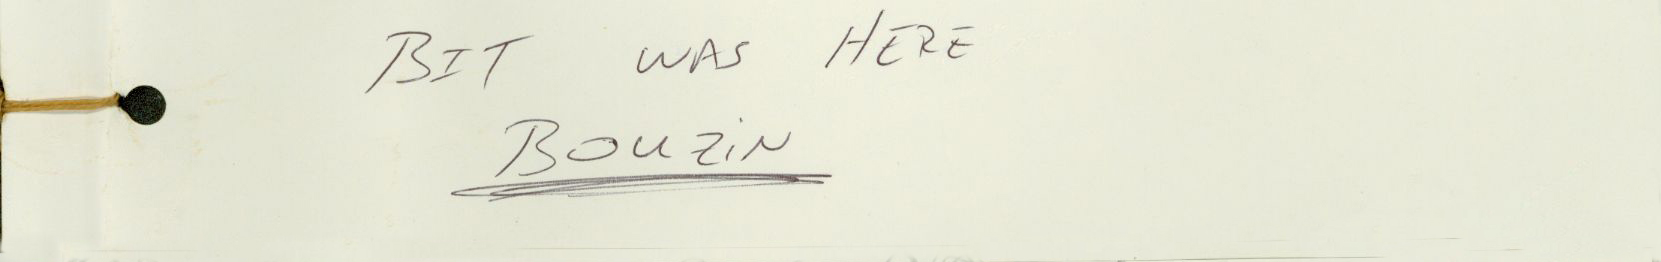 BIT WAS HERE
BOUZiN